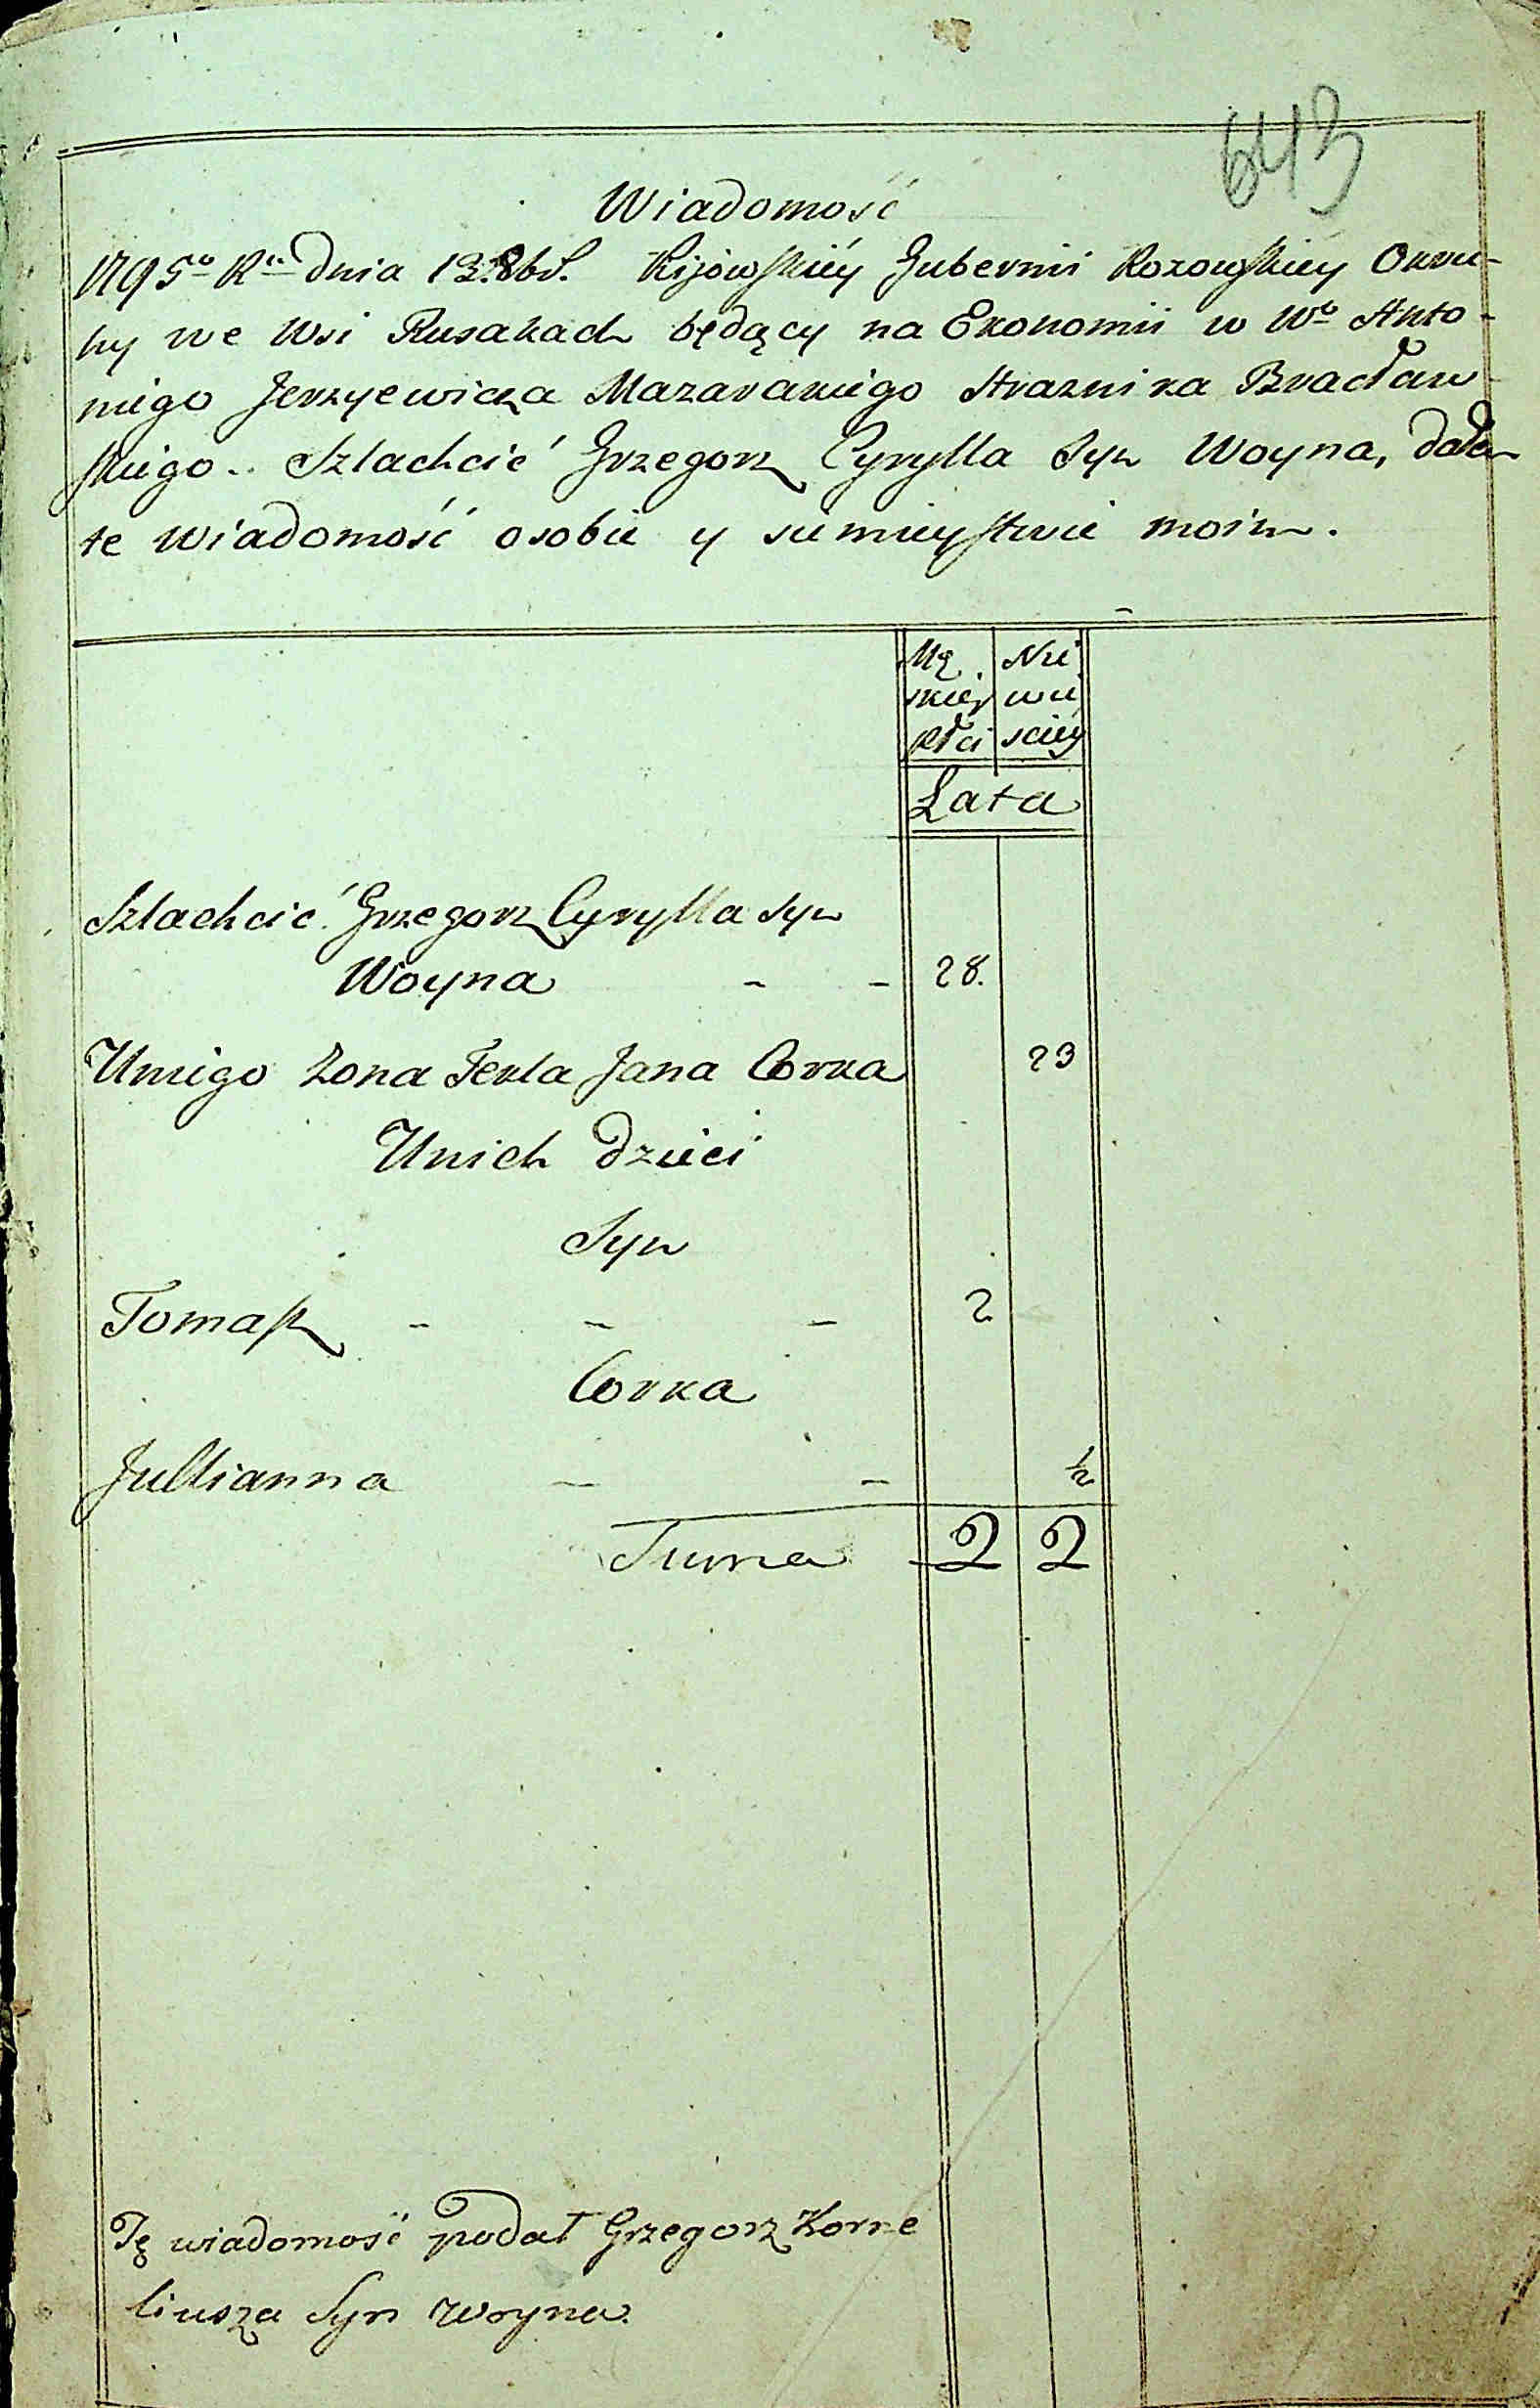 643
Wiadomość
1795º Rº Dnia 13. 8bř. Kijowskiéy Gubernii Rozowskiey Okru-
hy we Wsi Rusakach będący na Ekonomii u Wº Anto-
niego Jerzyewicza Mazarakiego Straznika Bracław-
skiego. Szlachcić Grzegorz Cyrylla Syn Woyna, dałem
te wiadomość osobie y siemieystwie moim.
Mę Nie
skiey wie
płci sciéy
Łata
Szlachcić Grzegorz Cyrylla Syn
Woyna - - 28.
Uniego Zona Tekla Jana Corka 23
Unich Dzieci
Syn
Tomasz - - - 2
Corka
Jullianna - - ½
Suma 2 2
Tę wiadomość podał Grzegorz Korne
liusza Syn Woyna.